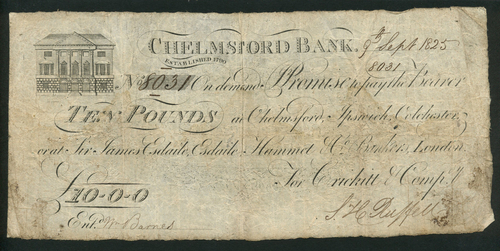 CHELMSFORD BANK. 9th Sept 1825
ESTABLISHED 1790
No. 8031 On demand I Promise to pay the Bearer 8031
TEN POUNDS at Chelmsford, Ipswich, Colchester,
or at Sir James Esdaile, Esdaile, Hammet, & Co. Bankers, London.
£10-0-0 For Crickitt & Compy.
Entd. W Barnes S H Ruffell